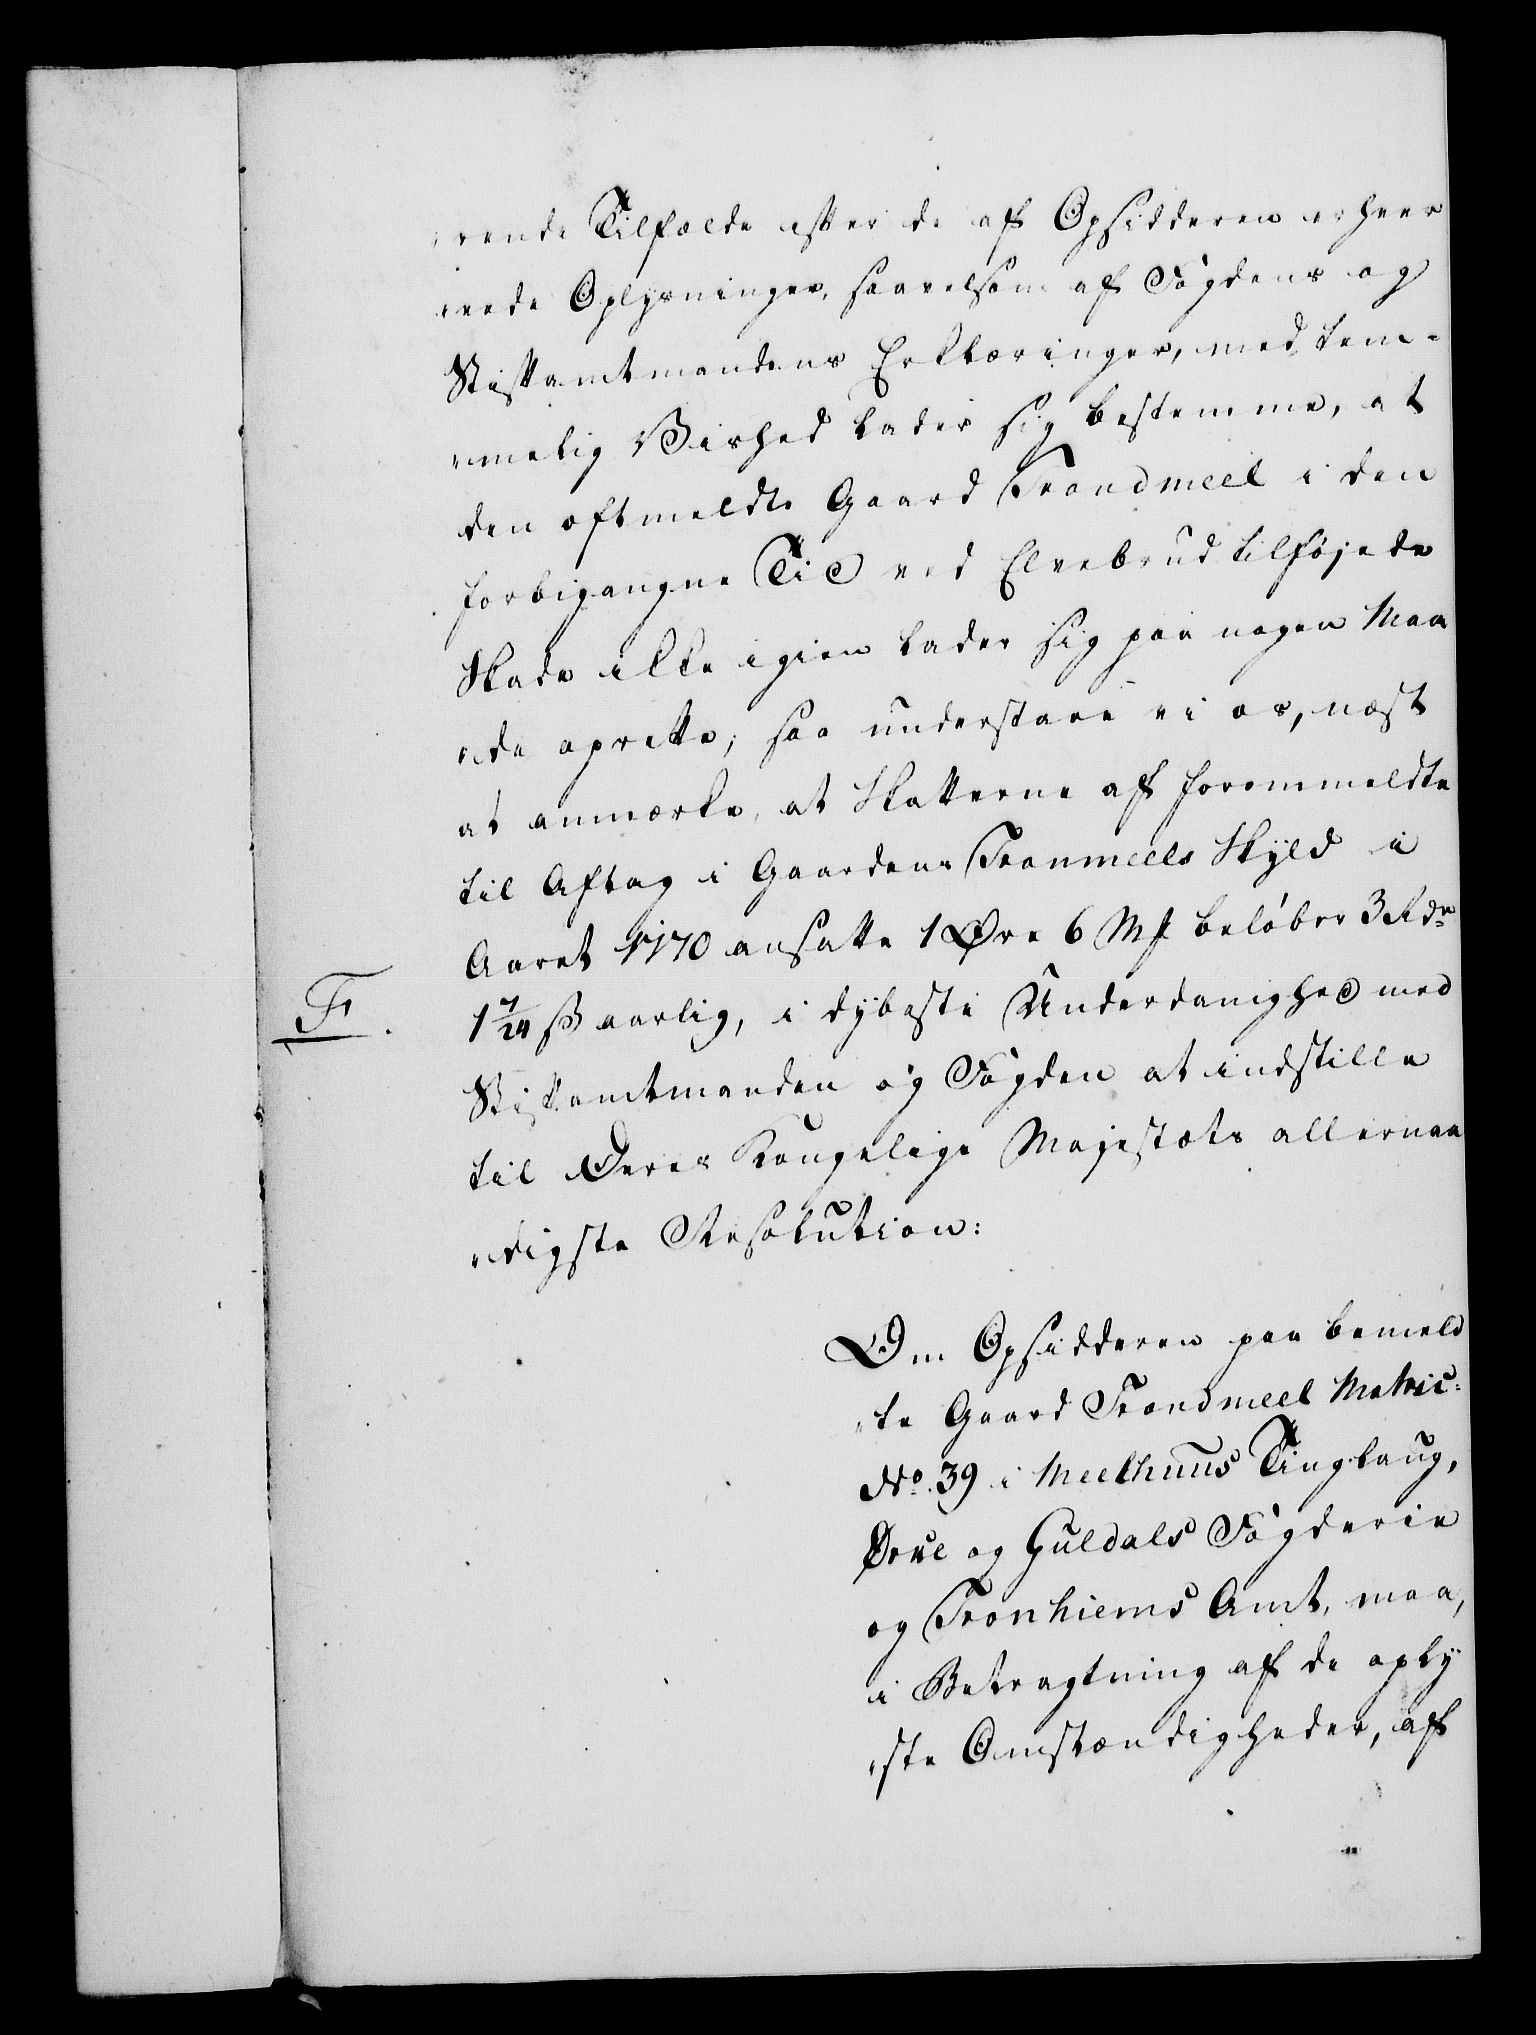 „rende Tilfælde efter de af Opsidderen erhver
„vede Oplysninger, saavelsom af Fogdens og
Stiftamtmandens Erklæringer, med tem-
„melig Vished lader sig bestemme, at
den oftmeldte Gaard Trondmeel i den
forbigangne Tid ved Elvebrud tilføjede
Skade ikke igien lader sig paa nogen Maa
„de oprette; saa understaae vi os, næst
at anmærke, at Skatterne af forommeldte
til Aftag i Gaardens Tronmeels Skyld i
Aaret 1770 ansatte 1 Øre 6 Mf beløber 3 Rdr
F.
1 7/24 ß aarlig, i dybeste Underdanighed med
Stiftamtmanden og Fogden at indstille
til Deres Kongelige Majestæts allernaa
„digste Resolution:
Om Opsidderen paa bemeld
„te Gaard Trondmeel Matric:
No. 39 i Meelhuus Tinglaug,
Orke og Guldals Fogderie
og Tronhiems Amt, maa,
i Betragtning af de oply
„ste Omstændigheder, af